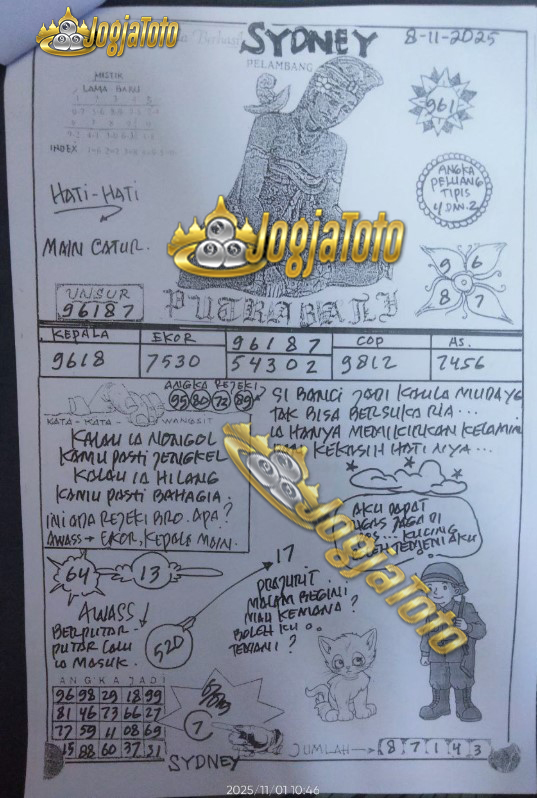 JogjaToto
SYDNEY
8-11-2025
PELAMBANG
MISTIK
LAMA BARU
INDEX
961
HATI-HATI
ANGKA
PELUANG
TIPIS
4 DAN 2
MAIN CATUR.
JogjaToto
9 6
8 7
UNSUR
96187
PUTRA BALI
KEPALA EKOR 96187 COP AS.
9618 7530 54302 9812 7456
ANGKA REJEKI
95 80 72 89
KATA-KATA WANGSIT
KALAU IA NONGOL
KAMU PASTI JENGKEL
KALAU IA HILANG
KAMU PASTI BAHAGIA.
INI ADA REJEKI BRO. APA?
AWASS → EKOR, KEPALA MAIN.
SI BANCI JADI KAULA MUDA YG
TAK BISA BERSUKA RIA...
IA HANYA MEMIKIRKAN KELAMIN
KEKASIH HATINYA...
AKU DAPAT
JAGA DI
KUCING
TEMENI AKU
JogjaToto
64
13
17
AWASS!
BERPUTAR-
PUTAR LALU
IA MASUK.
520
PRAJURIT.
MALAM BEGINI
MAU KEMANA?
BOLEH KU
TEMANI?
ANGKA JADI
96 98 29 18 99
81 46 73 66 27
77 59 11 08 69
15 88 60 37 31
7
SYDNEY
JUMLAH → 8 7 1 4 3
2025/11/01 10:46